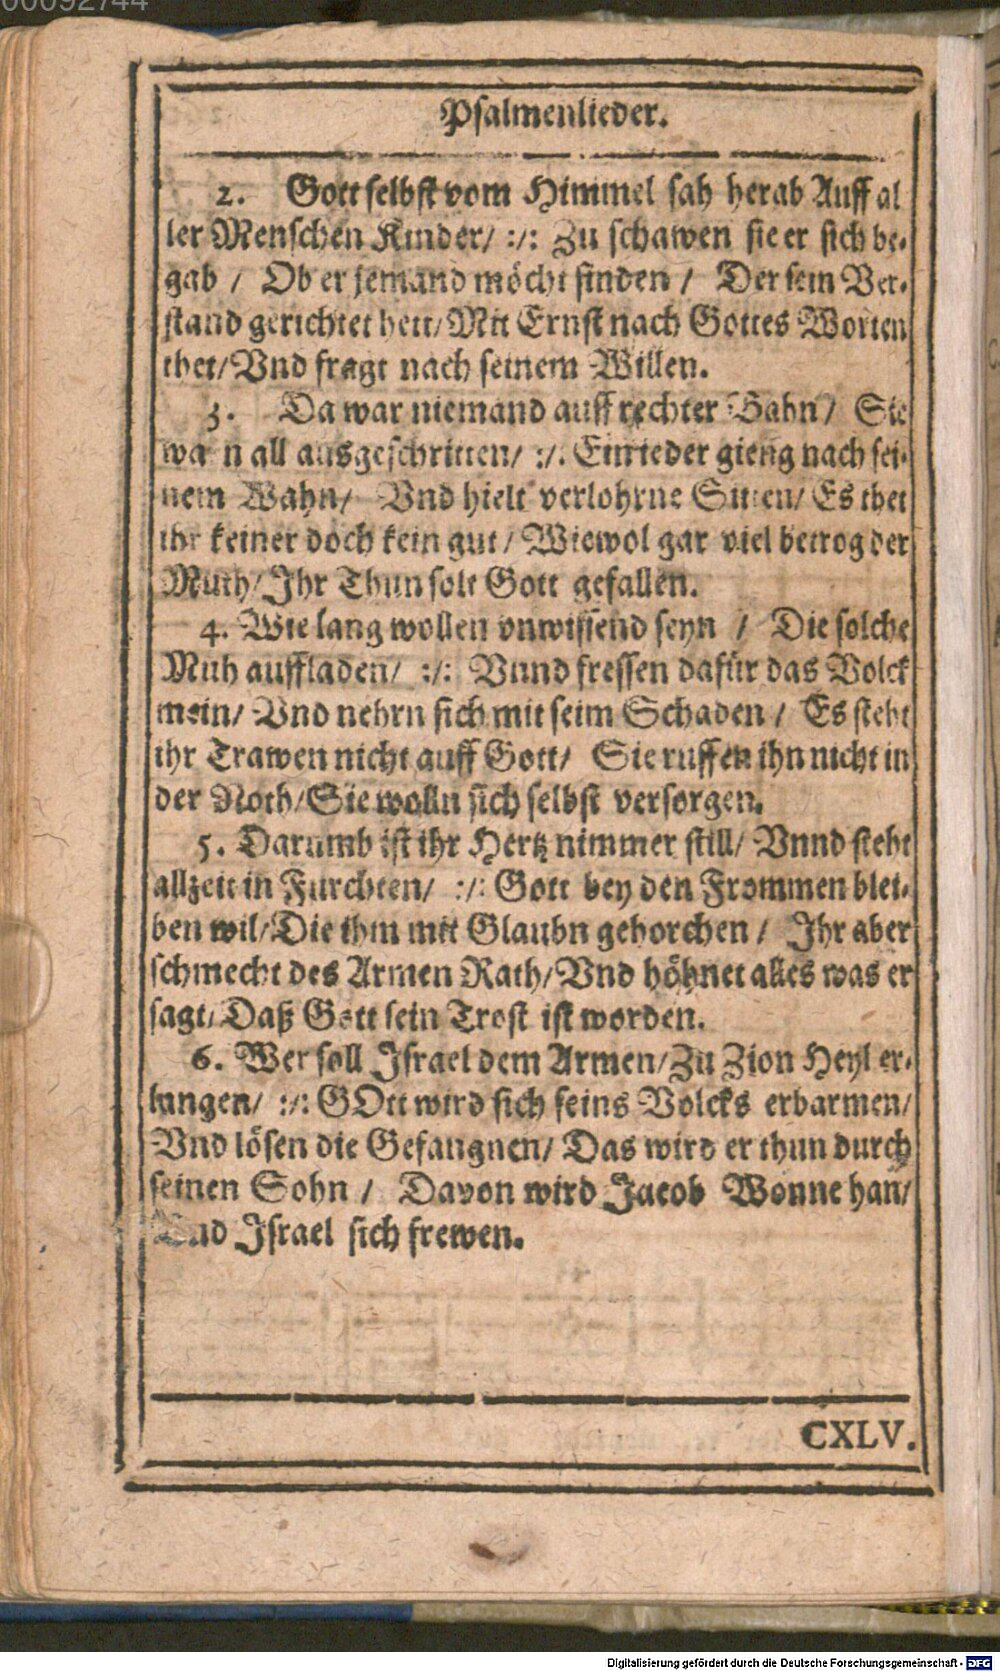 00092744
Psalmenlieder.
2. Gott selbst vom Himmel sah herab Auff al
ler Menschen Kinder/ :/: Zu schawen sie er sich be-
gab / Ob er jemand möcht finden / Der sein Ver-
stand gerichtet hett/ Mit Ernst nach Gottes Worten
thet/ Vnd fragt nach seinem Willen.
3. Da war niemand auff rechter Bahn / Sie
warn all ausgeschritten/ :/: Ein ieder gieng nach sei-
nem Wahn/ Vnd hielt verlohrne Sitten/ Es thet
ihr keiner doch kein gut / Wiewol gar viel betrog der
Muth/ Ihr Thun solt Gott gefallen.
4. Wie lang wollen vnwissend seyn / Die solche
Müh auffladen/ :/: Vnnd fressen dafür das Volck
mein/ Vnd nehrn sich mit seim Schaden / Es steht
ihr Trawen nicht auff Gott/ Sie ruffen ihn nicht in
der Noth/ Sie wolln sich selbst versorgen.
5. Darumb ist ihr Hertz nimmer still/ Vnnd steht
allzeit in Furchten/ :/: Gott bey den Frommen blei-
ben wil/ Die ihm mit Glaubn gehorchen / Ihr aber
schmecht des Armen Rath/ Vnd höhnet alles was er
sagt/ Daß Gott sein Trost ist worden.
6. Wer soll Israel dem Armen/ Zu Zion Heyl er-
langen/ :/: GOtt wird sich seins Volcks erbarmen/
Vnd lösen die Gefangnen/ Das wird er thun durch
seinen Sohn / Davon wird Jacob Wonne han/
Vnd Israel sich frewen.
CXLV.
Digitalisierung gefördert durch die Deutsche Forschungsgemeinschaft - DFG